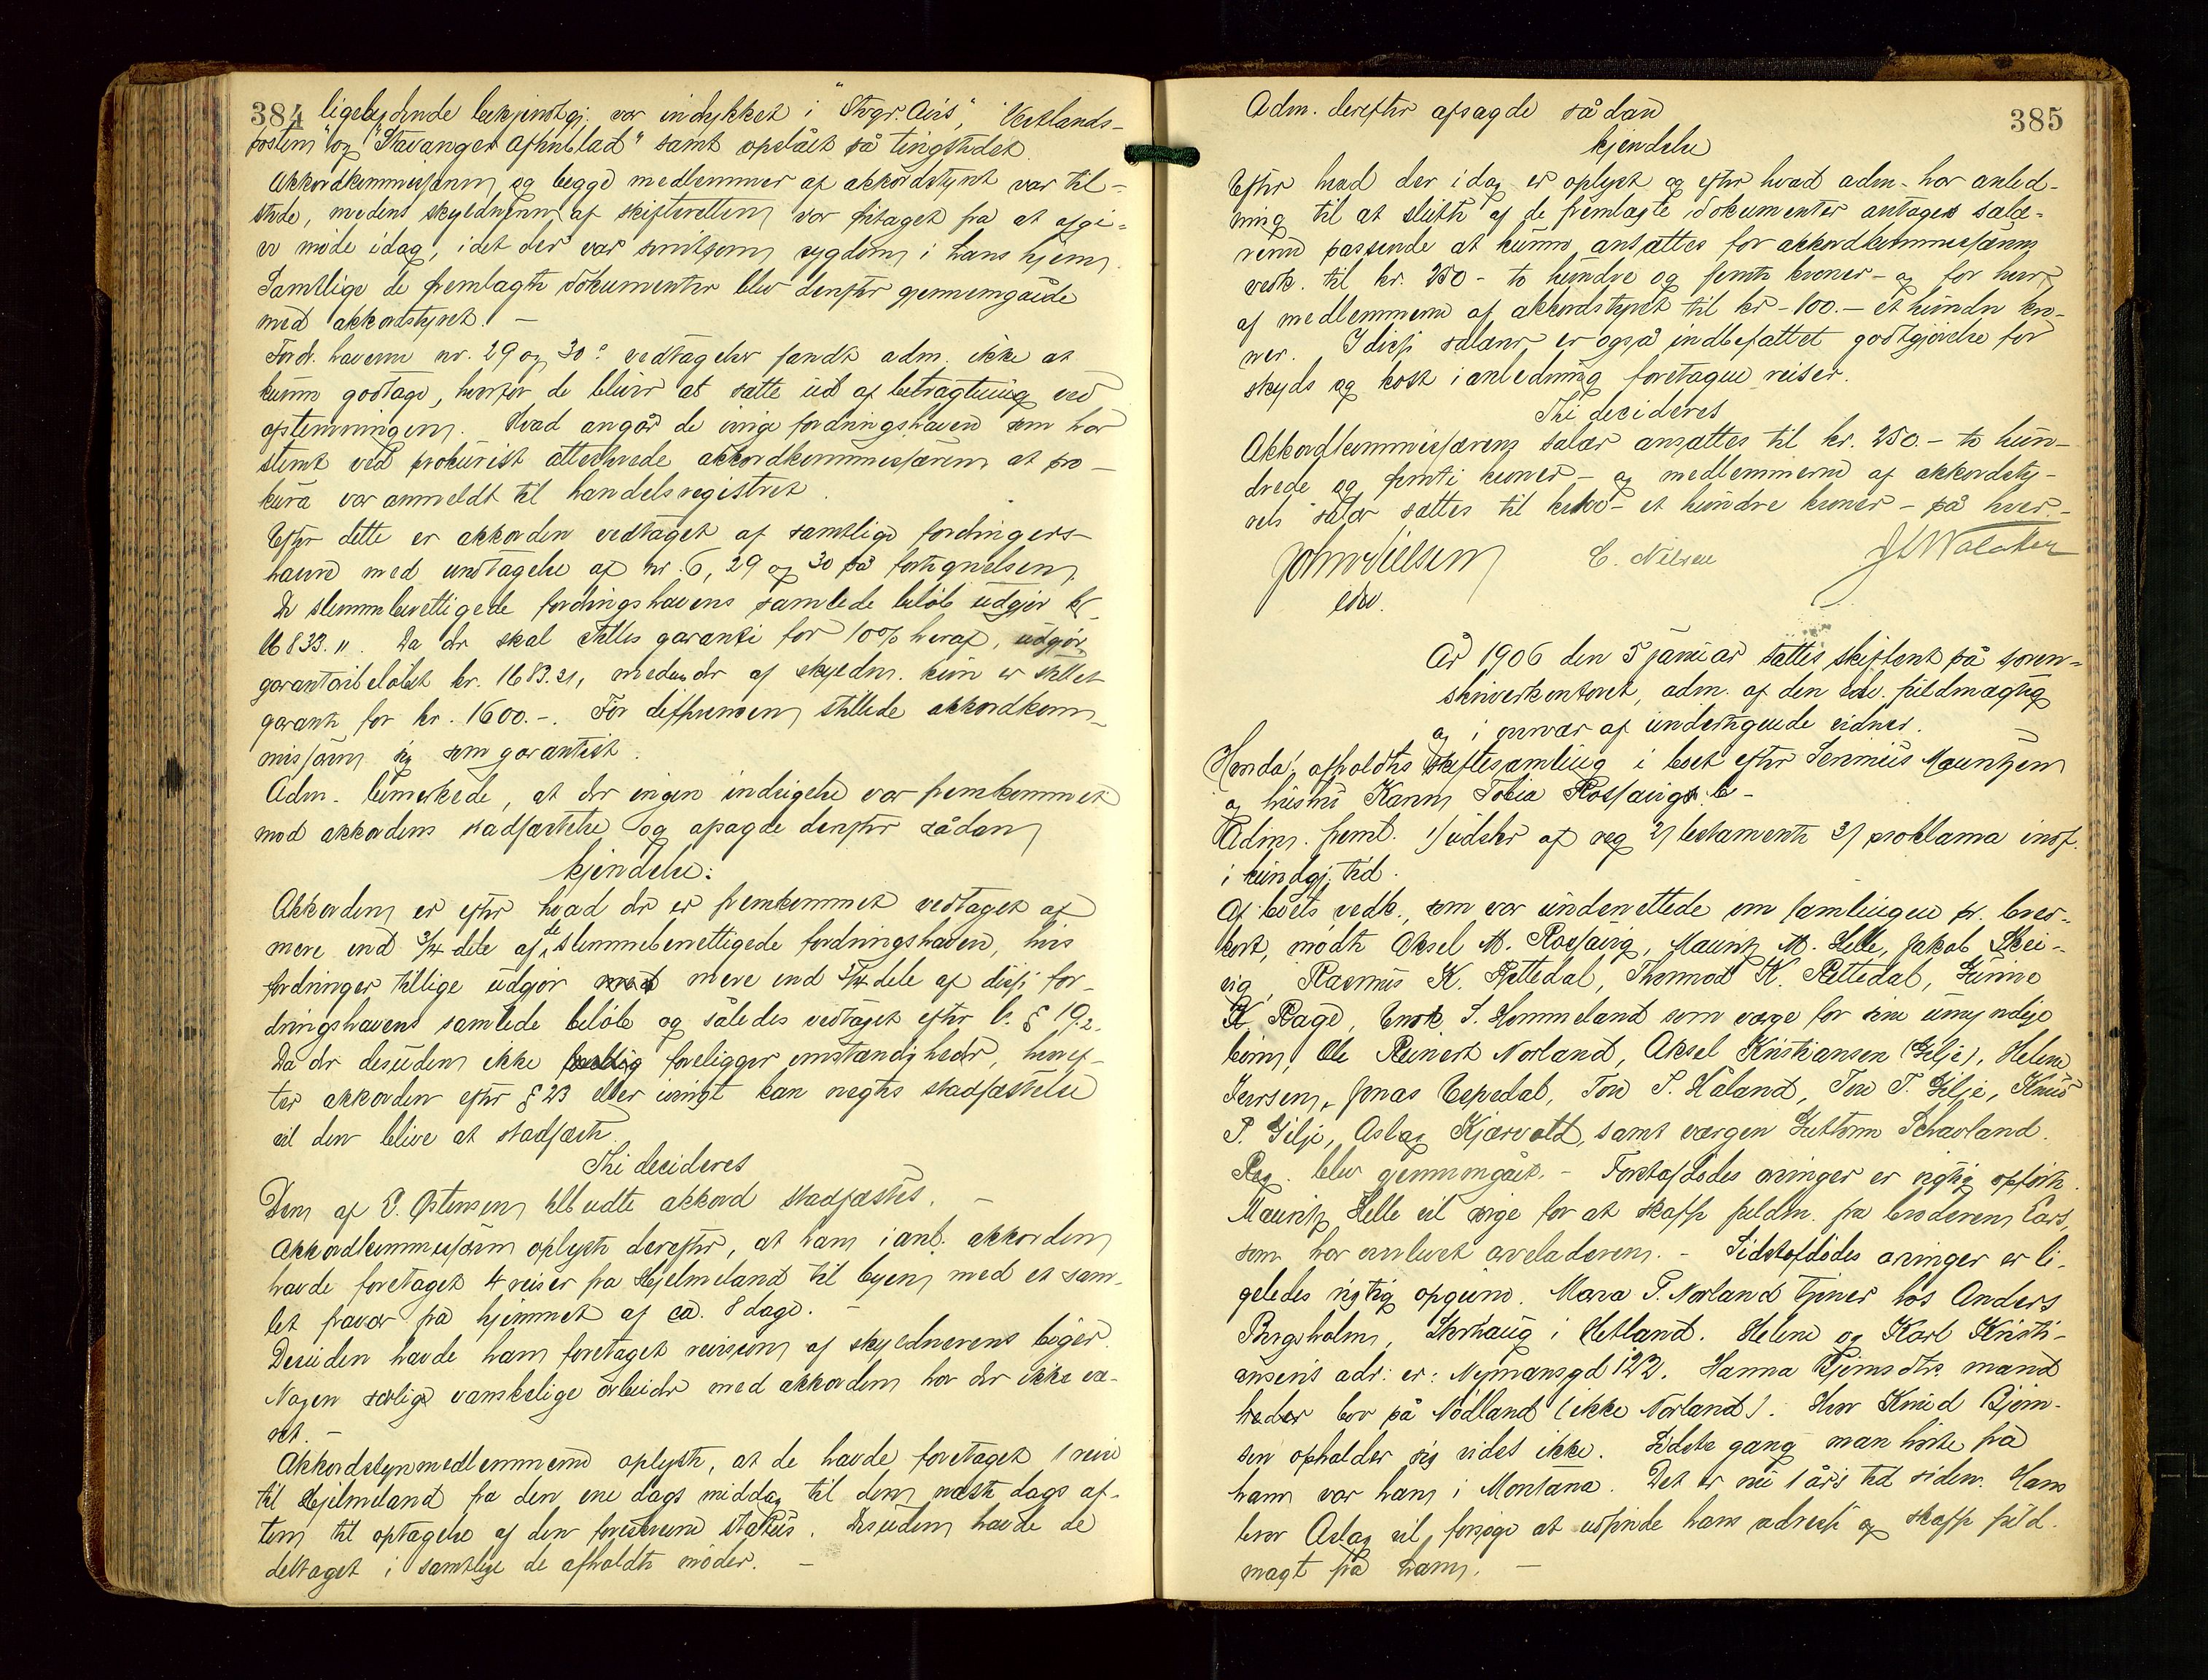 384 ligelydende bekjendtgj. var indrykket i "Stvgr. Avis", "Vestlands-
posten" og "Stavanger Aftenblad" samt opslået på tingstedet.
Akkordkommissæren og begge medlemmer af akkordstyret var til-
stede, medens skyldneren af skifteretten var fritaget fra at afgi-
ve møde idag, idet der var smitsom sygdom i hans hjem.
Samtlige de fremlagte dokumenter blev derefter gjennemgåede
med akkordstyret. -
Fordr. haverne nr. 29 og 30s vedtagelse fandt adm. ikke at
kunne godtage, hvorfor de bliver at sætte ud af betragtning ved
afstemningen. Hvad angår de øvrige fordringshavere som har
stemt ved prokurist attesterede akkordkommissæren at pro-
kura var anmeldt til handelsregistret.
Efter dette er akkorden vedtaget af samtlige fordringers-
havere med undtagelse af nr. 6, 29 og 30 på fortegnelsen.
De stemmeberettigede fordringshavers samlede beløb udgjør kr
16833. ". Da der skal stilles garanti for 10% heraf, udgjør
garantibeløbet kr. 1683.31, medens der af skyldn. kun er stillet
garanti for kr. 1600.-. For differencen stillede akkordkom-
missæren sig som garantist.
Adm. bemærkede, at der ingen indsigelse var fremkommet
mod akkordens stadfæstelse og afsagde derefter sådan
kjendelse:
Akkorden er efter hvad der er fremkommet vedtaget af
mere end 3/4 dele af de stemmeberettigede fordringshavere, hvis
fordringer tillige udgjør mere end 3/4 dele af disse for-
dringshaveres samlede beløb og således vedtaget efter l. § 19 2.
Da der desuden ikke foreligger omstændigheder, hvoref-
ter akkorden efter § 23 eller øvrigt kan negtes stadfæstelse
vil den blive at stadfæste.
Thi decideres
Den af P. Østensen tilbudte akkord stadfæstes. -
Akkordkommissæren oplyste derefter, at han i anl. akkorden
havde foretaget 4 reiser fra Hjelmeland til byen med et sam-
let fravær fra hjemmet af ca. 8 dage. -
Desuden havde han foretaget revision af skyldnerens bøger.
Nogen særlige vanskelige arbeider med akkorden har der ikke væ-
ret. -
Akkordstyremedlemmerne oplyste, at de havde foretaget 1 reise
til Hjelmeland fra den ene dags middag til den næste dags af-
ten til optagelse af den foreskrevne status. Desuden havde de
deltaget i samtlige de afholdte møder. -
385
Adm. derefter afsagde sådan
kjendelse
Efter hvad der idag er oplyst og efter hvad adm. har anled-
ning til at slutte af de fremlagte dokumenter antages salæ-
rerne passende at kunne ansættes for akkordkommissærens
vedk. til kr. 250 - to hundre og femti kroner - og for hver
af medlemmerne af akkordstyret til kr - 100.- et hundre kro-
ner. I disse salærer er også indbefattet godtgjørelse for
skyds og kost i anledning foretagne reiser.
Thi decideres
Akkordkommissærens salær ansættes til kr. 250 - to hun-
drede og femti kroner - og medlemmerne af akkordsty-
rets salær sættes til kr 100 - et hundre kroner - på hver. -
John Nielsen C. Nilsen
edsv.
År 1906 den 5 januar sattes skifteret på soren-
skriverkontoret, adm. af den edsv. fuldmægtig
og i nærvær af undertegnede vidner.
Hvorda: afholdtes skiftesamling i boet efter Severinus Mauritzen
og hustru Karen Tobia Rossavigs b -
Adm. freml. 1/ udskr af reg 2/ testamente 3/ proklama indf.
i kundgj. tid.
Af boets vedk., som var underrettede om samlingen pr. brev-
kort, mødte Aksel M. Rossavig, Mauritz M. Helle, Jakob Skei-
vig, Rasmus K. Rettedal, Thormod K. Rettedal, Gunvo
K. Rage, Enok S. Hommeland som værge for sine umyndige
børn, Ole Reinert Norland, Aksel Kristiansen (Gilje), Helene
Iversen, Jonas Espedal, Tore P. Håland, Tore T. Gilje, Knud
P. Gilje, Aslag Kjærvold, samt værgen Guttorm Schavland.
Reg. blev gjennemgået. - Førstafdødes arvinger er rigtig opførte.
Mauritz Helle vil sørge for at skaffe fuldm. fra broderen Lars,
som har overlevet arveladeren. - Sidstafdødes arvinger er li-
geledes rigtig opgivne. Mara P. Norland tjener hos Anders
Bergsholm, Storhaug i Hetland. Helene og Karl Kristi-
ansens adr: er: Nymansgd 122. Hanna Bjørnsdtr. mand
heder bor på Nødland (ikke Norland). Hvor Knud Bjørn-
sen opholder sig vides ikke. Sidste gang man hørte fra
ham var han i Montana. Det er nu 1 års tid siden. Hans
bror Aslag vil forsøge at udfinde hans adresse og skaffe fuld-
magt fra ham. -